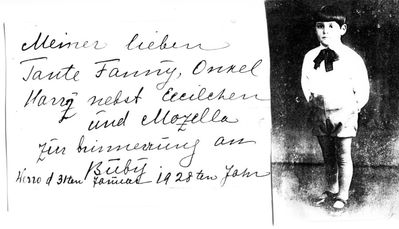 Meiner lieben
Tante Fanny, Onkel
Harry nebst Cecilchen
und Mozella
zur Erinnerung an
Buby
d 31ten Januar 1928ten Jahr